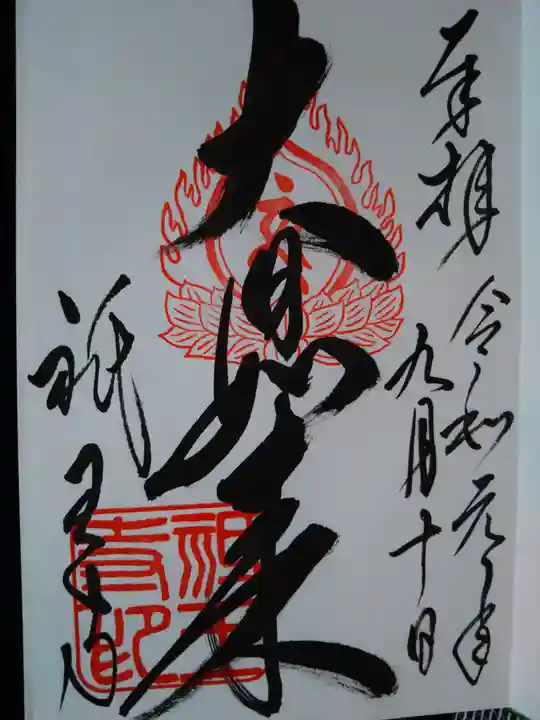 奉拝
令和元年
九月十日
大日如来
祇王寺
祇王寺印